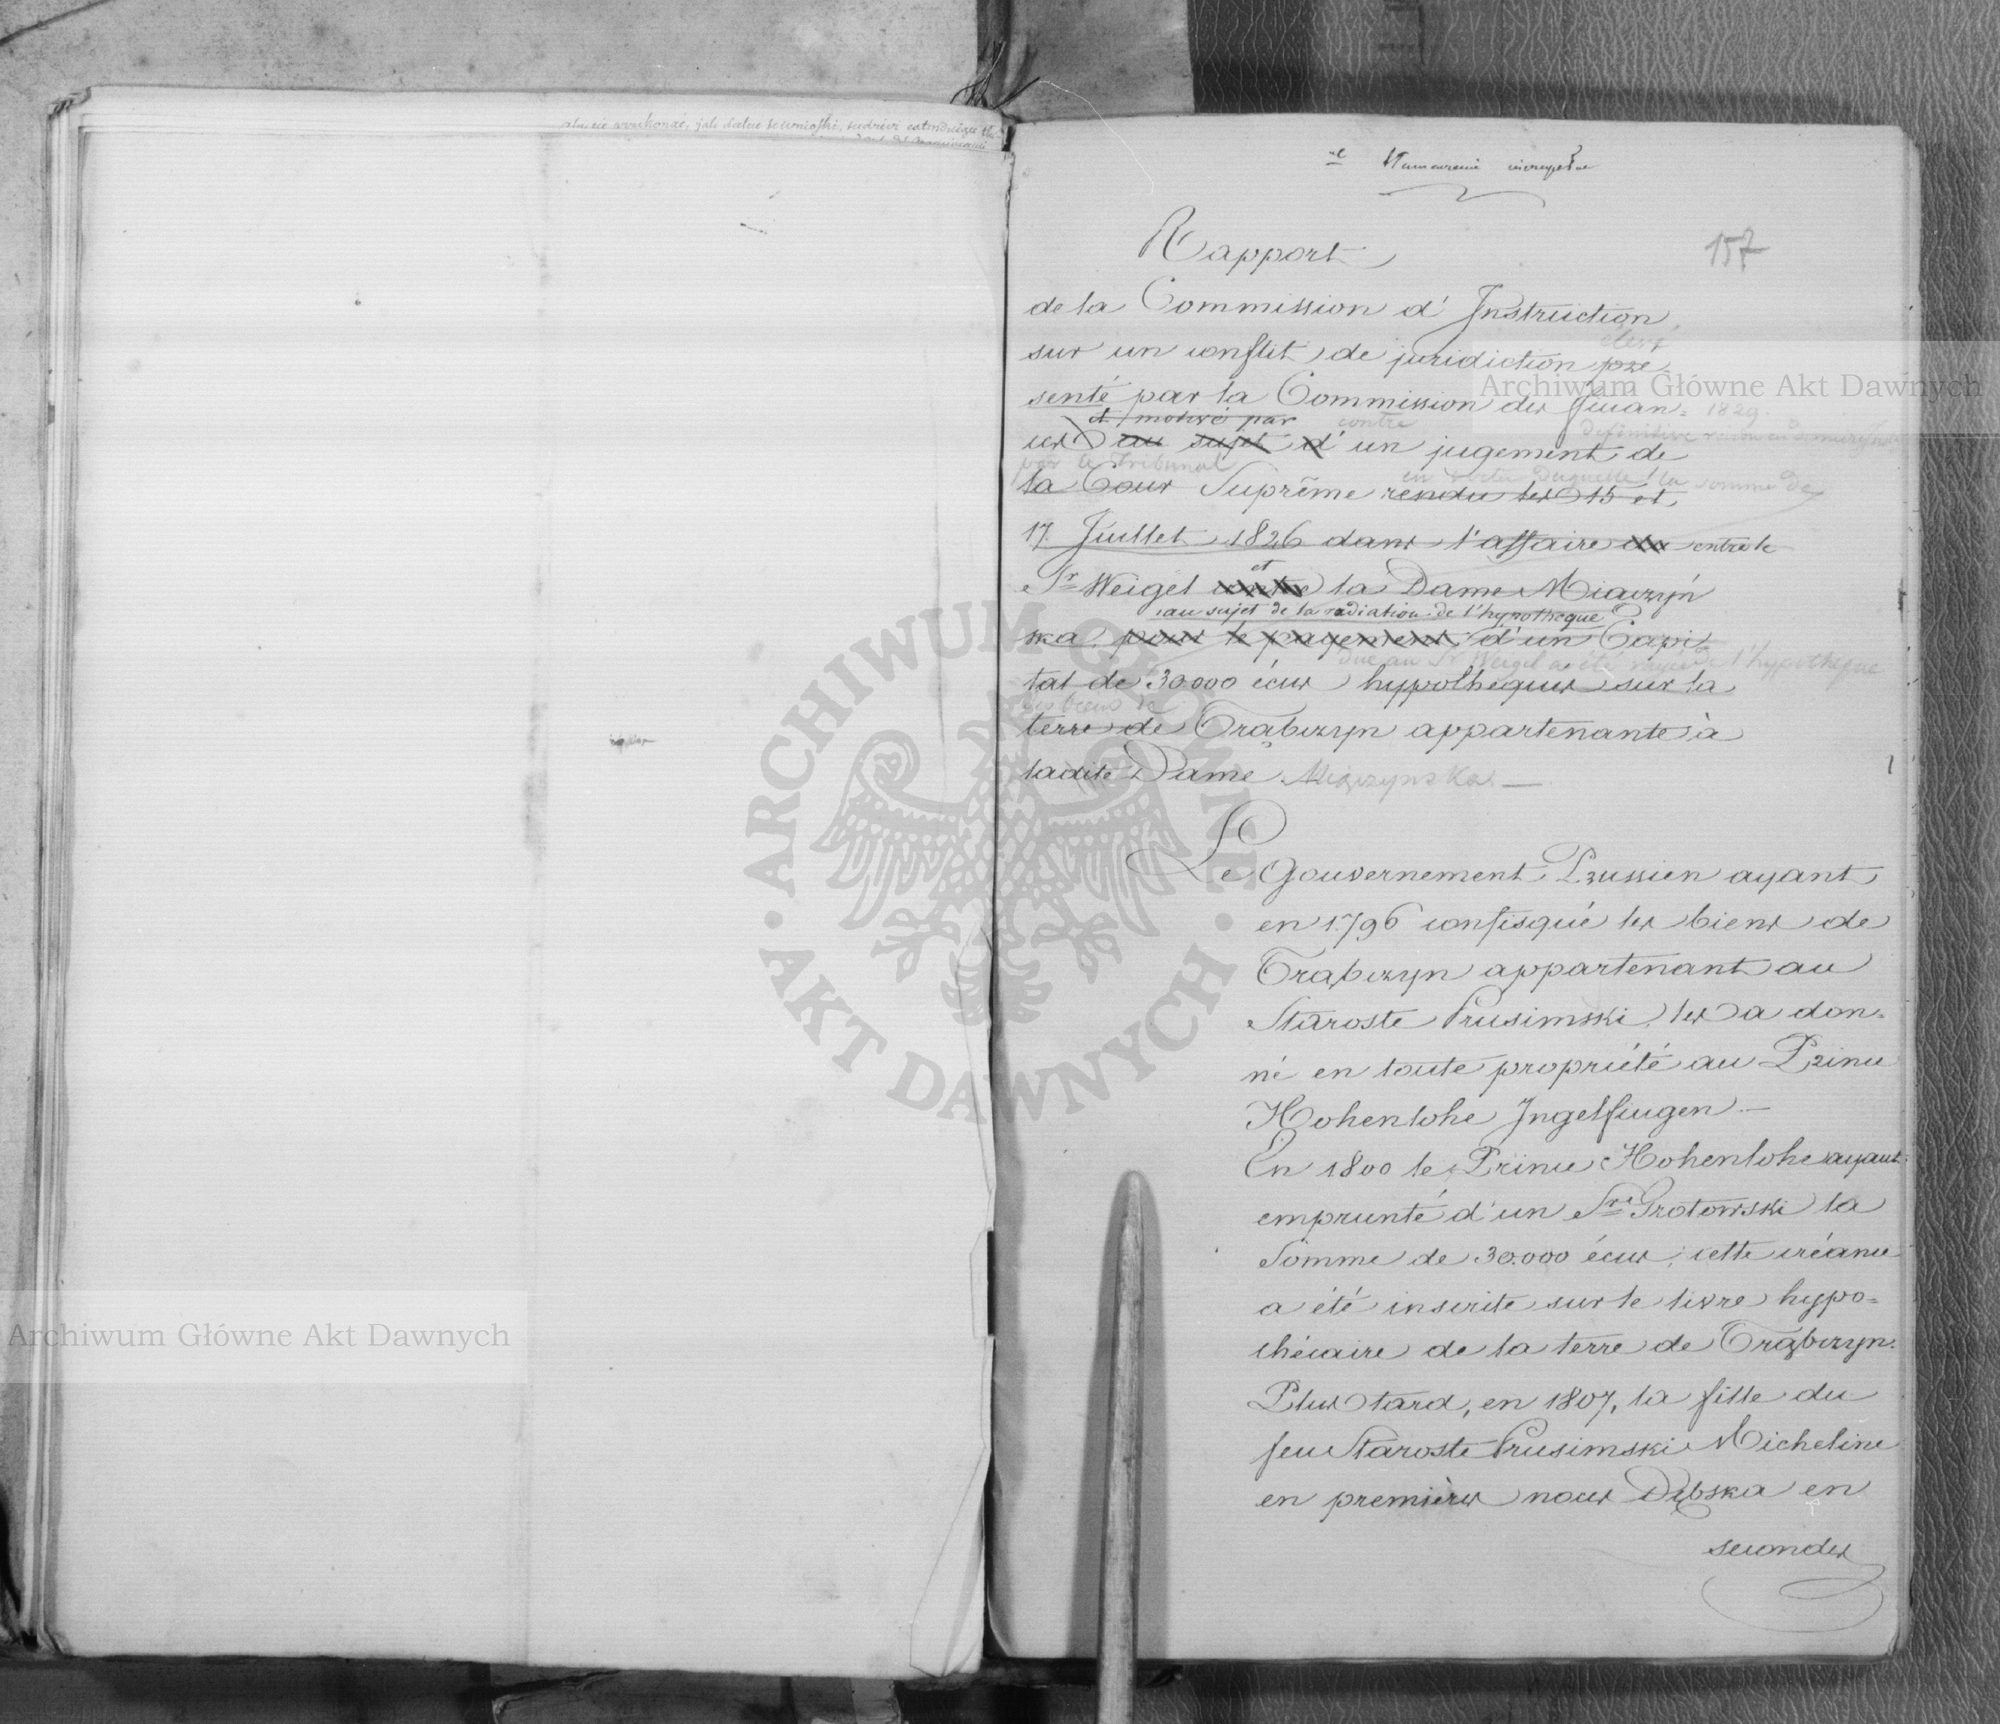 157
Rapport
de la Commission d'Instruction
sur un conflit de juridiction élevé pré-
senté par la Commission des finan= 1829
ces et motivé par au sujet d' contre un jugement de
par le Tribunal
la Cour Suprême rendu les 15 et
en vertu duquel la somme de
17. Juillet 1826 dans l'affaire entre le
Sr Weigel et la Dame Miączyń
au sujet de la radiation de l'hypothèque
ska, pour le payement d'un Capi
due au Sr Weigel a été rayée de l'hypothèque
tal de 30.000 écus hypothequés sur la
des biens de
terre de Trąbczyn appartenante à
ladite Dame Miączynska. —
Le Gouvernement Prussien ayant
en 1796 confisqué les biens de
Trąbczyn appartenant au
Staroste Prusimski, les a don=
né en toute propriété au Prince
Hohenlohe Ingelfingen —
En 1800 le Prince Hohenlohe ayant
emprunté d'un Sr Grotowski la
Somme de 30.000 écus, cette créance
a été inscrite sur le livre hypo=
thécaire de la terre de Trąbczyn.
Plus tard, en 1807, la fille du
feu Staroste Prusimski Micheline
en premières noces Dębska en
secondes
Archiwum Główne Akt Dawnych
Archiwum Główne Akt Dawnych
ARCHIWUM GŁÓWNE AKT DAWNYCH